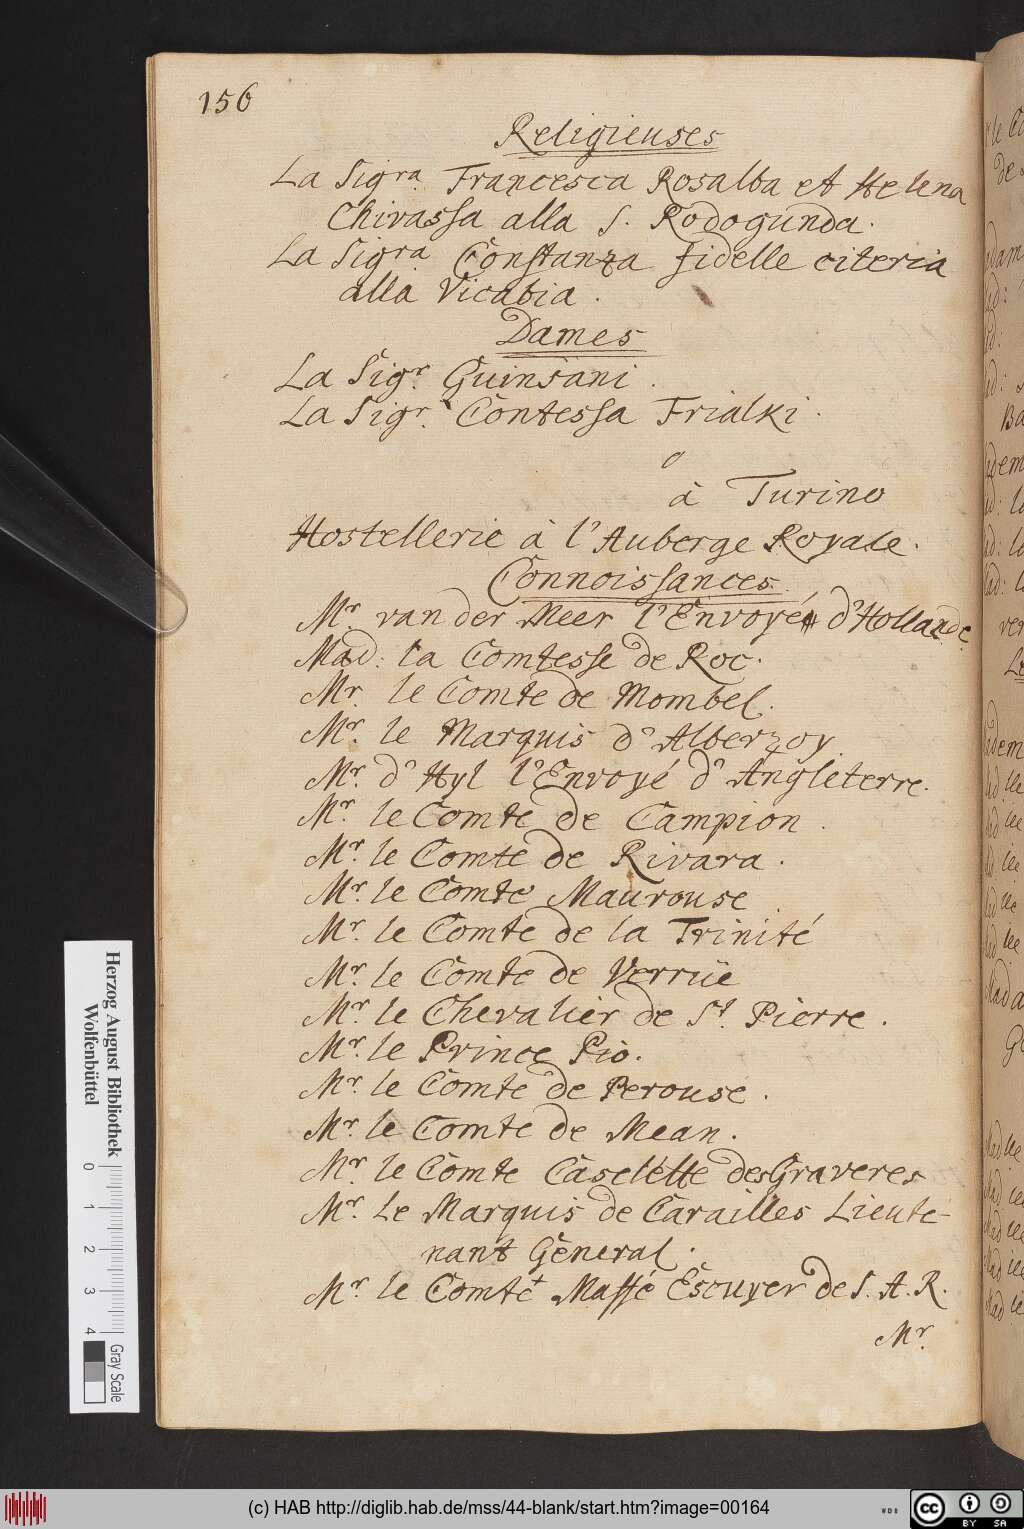 156
Religieuses
La Sigra. Francesca Rosalba et Helena
Chivassa alla S. Rodogunda.
La Sigra Constanza fidelle citeria
alla Vicabia.
Dames
La Sigr. Guinsani.
La Sigr. Contessa Frialki.
à Turino
Hostellerie à l'Auberge Royale.
Connoissances.
Mr. van der Meer l'Envoyé d'Hollande.
Mad: la Comtesse de Roc.
Mr. le Comte de Mombel.
Mr. le Marquis d'Alberzoy.
Mr. d'Hyl l'Envoyé d'Angleterre.
Mr. le Comte de Campion.
Mr. le Comte de Rivara.
Mr. le Comte Maurouse
Mr. le Comte de la Trinité
Mr. le Comte de Verrüe
Mr. le Chevalier de St. Pierre.
Mr. le Prince Pio.
Mr. le Comte de Perouse.
Mr. le Comte de Mean.
Mr. le Comte Caselette des Graveres
Mr. Le Marquis de Carailles Lieute-
nant General.
Mr. le Comte Massé Escuyer de S. A. R.
Mr.
Herzog August Bibliothek
Wolfenbüttel
0 1 2 3 4
Gray Scale
(c) HAB http://diglib.hab.de/mss/44-blank/start.htm?image=00164
WDB
CC BY SA